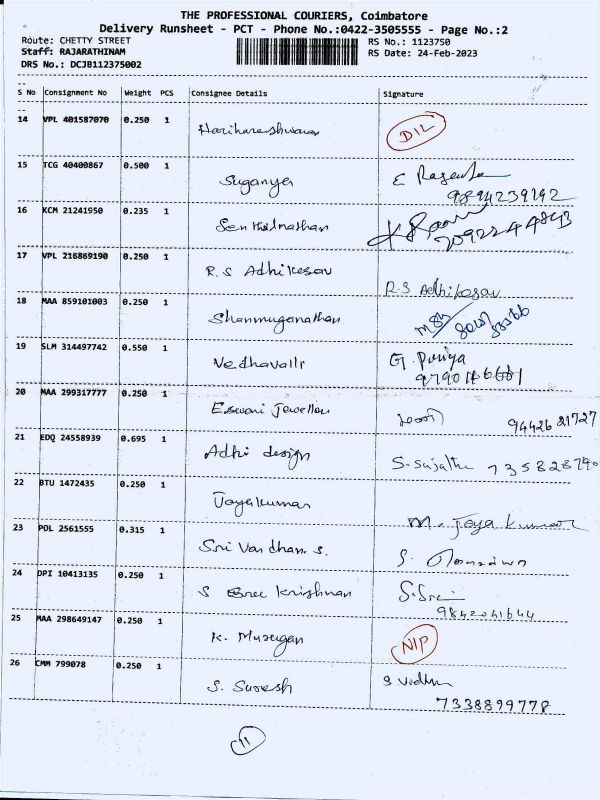 THE PROFESSIONAL COURIERS, Coimbatore
Delivery Runsheet - PCT - Phone No.:0422-3505555 - Page No.:2
Route: CHETTY STREET
RS No.: 1123750
Staff: RAJARATHINAM
RS Date: 24-Feb-2023
DRS No.: DCJB112375002
S No Consignment No Weight PCS Consignee Details Signature
14 VPL 401587070 0.250 1 Harihareshwaran DIL
15 TCG 40400867 0.500 1 Suganya E
9894239192
16 KCM 21241950 0.235 1 Senthilnathan
7092244843
17 VPL 216869190 0.250 1 R.S Adhikesav R.S Adhikesav
18 MAA 859101003 0.250 1 Shanmuganathan
19 SLM 314497742 0.550 1 Vedhavalli G. Puniya
20 MAA 299317777 0.250 1 Eswari Jewellers 94426 21727
21 EDQ 24558939 0.695 1 Adhi design S. Sujatha
22 BTU 1472435 0.250 1 Jayakumar M. Jaya Kumar
23 POL 2561555 0.315 1 Sri Vardhans. S.
24 DPI 10413135 0.250 1 S Sree Krishnan S. Sri
9842041644
25 MAA 298649147 0.250 1 K. Murugan NIP
26 CMM 799078 0.250 1 S. Suresh S Vidhu
7338899778
11